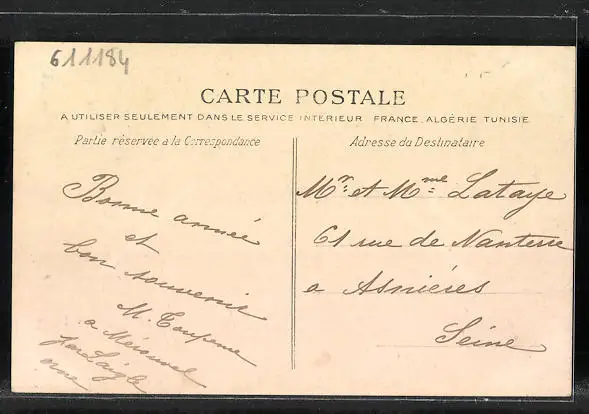 611184
CARTE POSTALE
A UTILISER SEULEMENT DANS LE SERVICE INTERIEUR FRANCE, ALGÉRIE TUNISIE
Partie réservée à la Correspondance
Adresse du Destinataire
Bonne année
et
bon souvenir
M.
a
par Laigle
orne
Mr. et Mme Lataye
61 rue de Nanterre
a Asnières
Seine